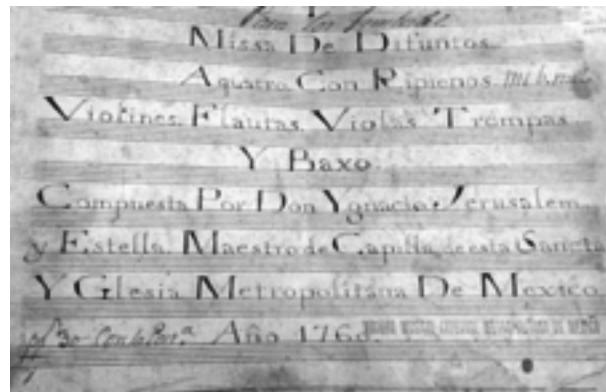 Para los
Missa De Difuntos.
Aquatro Con Ripienos.
Violines. Flautas. Violas. Trompas
Y Baxo.
Compuesta Por Don Ygnacio Jerusalem.
y Estella. Maestro de Capilla de esta Sancta
Y Glesia Metropolitana De Mexico.
Año 1760.